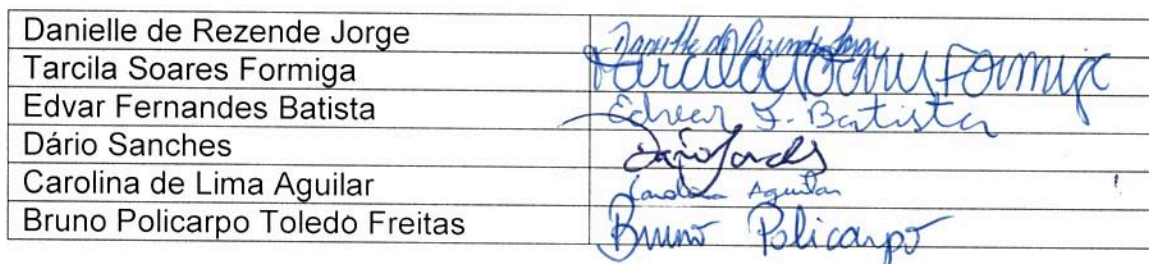 Danielle de Rezende Jorge Danielle de Rezende Jorge
Tarcila Soares Formiga Tarcila Soares Formiga
Edvar Fernandes Batista Edvar F. Batista
Dário Sanches Dário Sanches
Carolina de Lima Aguilar Carolina Aguilar
Bruno Policarpo Toledo Freitas Bruno Policarpo